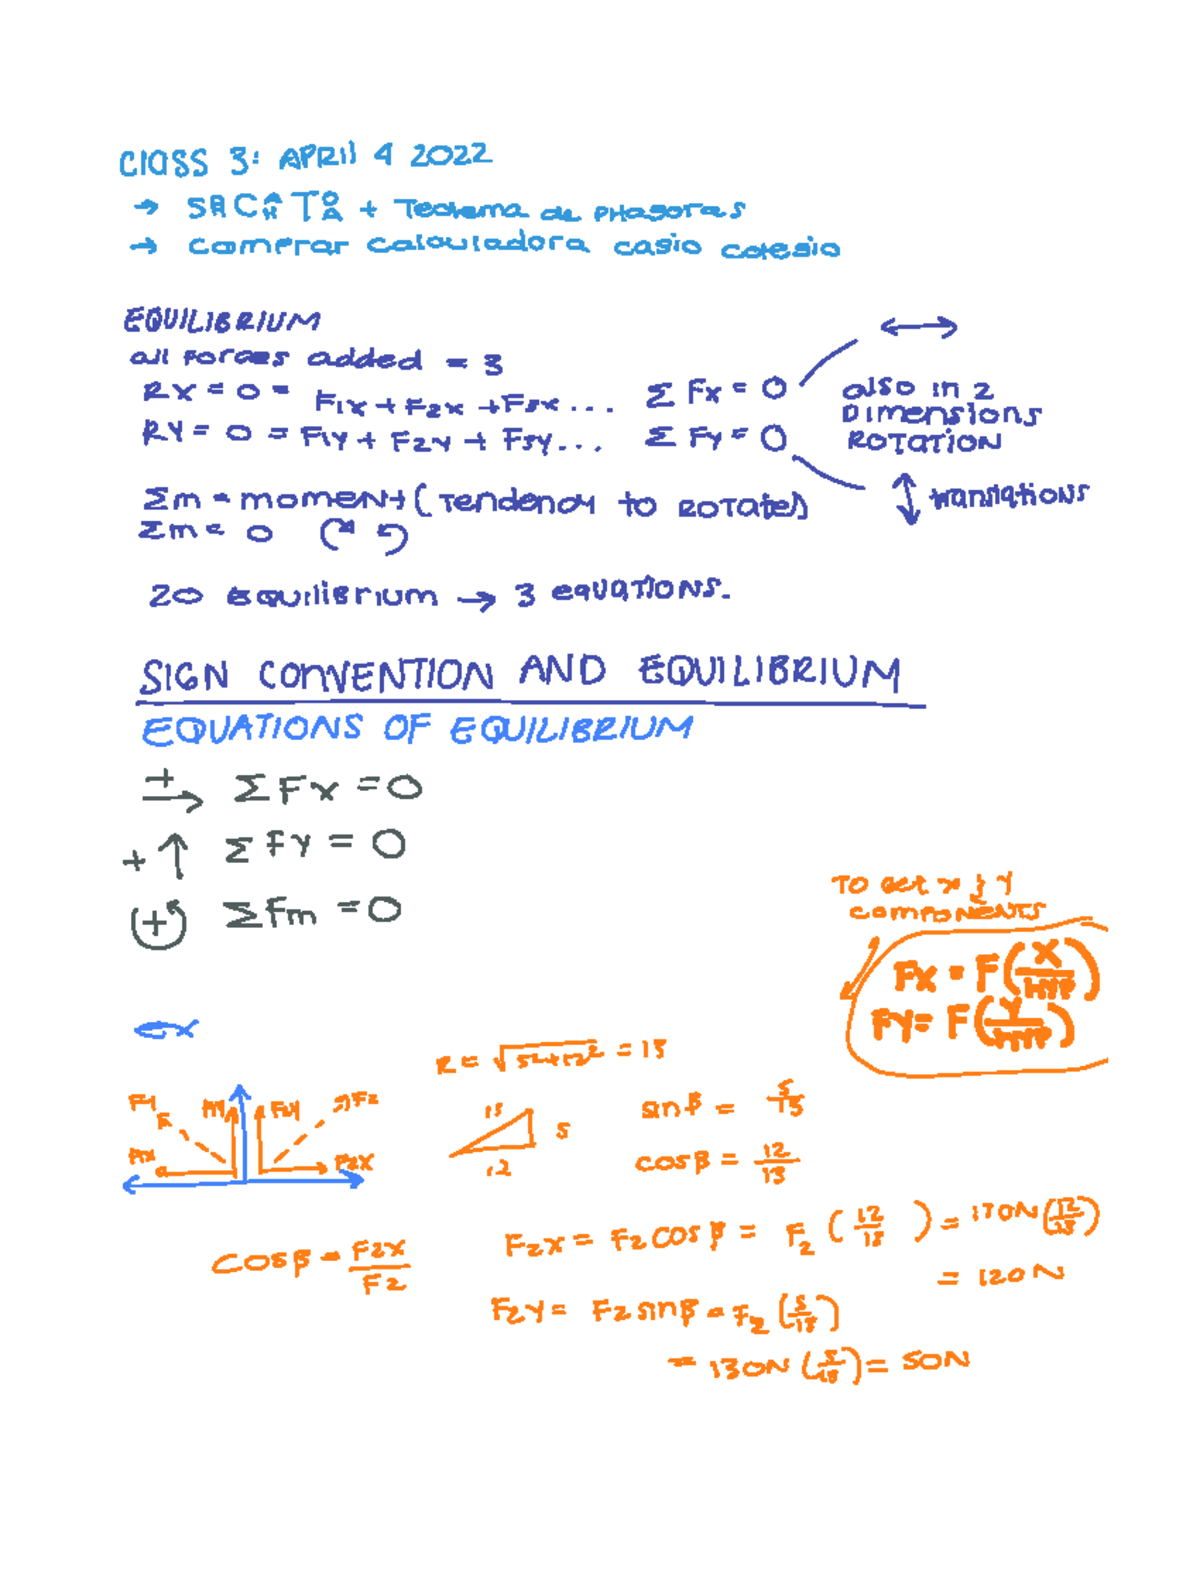 CLASS 3: APRIL 4 2022
→ SOH CAH TOA + Teorema de PHAGORAS
→ comprar calculadora casio colegio
EQUILIBRIUM
all Forces added = 3
RX = 0 = F1X + F2X + F3X ... Σ Fx = 0
RY = 0 = F1Y + F2Y + F3Y ... Σ Fy = 0
also in 2
DIMENSIONS
ROTATION
translations
Σm = moment (Tendency to ROTATE)
Σm = 0
20 EQUILIBRIUM → 3 equations.
SIGN CONVENTION AND EQUILIBRIUM
EQUATIONS OF EQUILIBRIUM
+→ ΣFx = 0
+↑ ΣFy = 0
(+) ΣFm = 0
TO GET x } Y
COMPONENTS
FX = F(X/HYP)
FY = F(Y/HYP)
EX
R = √5²+12² = 13
F1 F1Y F2Y F2
F1X F2X
13 5
12
sinβ = 5/13
cosβ = 12/13
COSβ = F2X/F2
F2X = F2 COSβ = F2 (12/13) = 130N (12/13)
= 120N
F2Y = F2 sinβ = F2 (5/13)
= 130N (5/13) = 50N